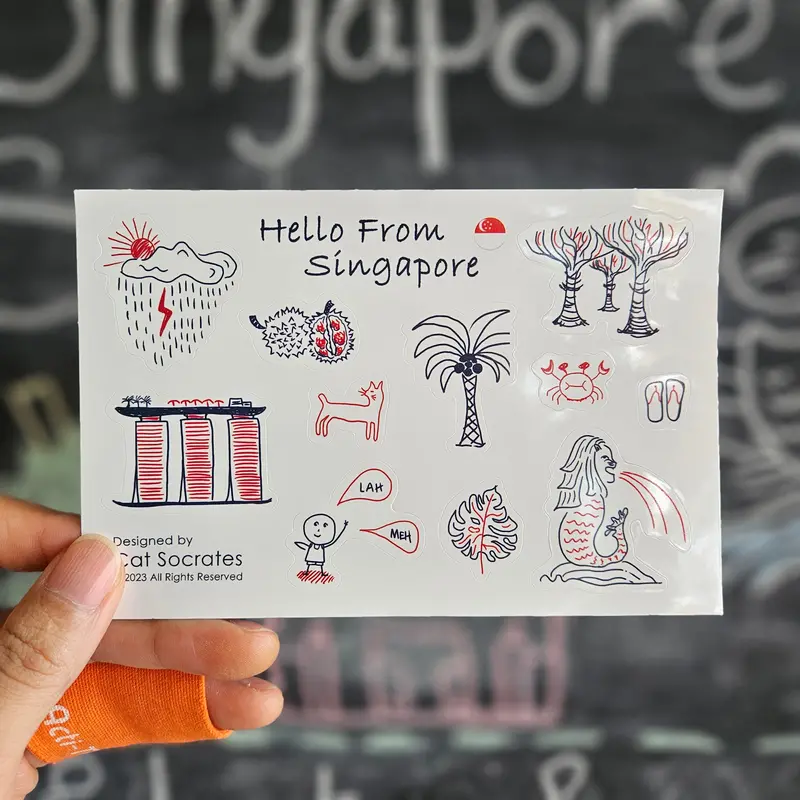 Singapore
Hello From
Singapore
LAH
MEH
Designed by
Cat Socrates
2023 All Rights Reserved
Acti-